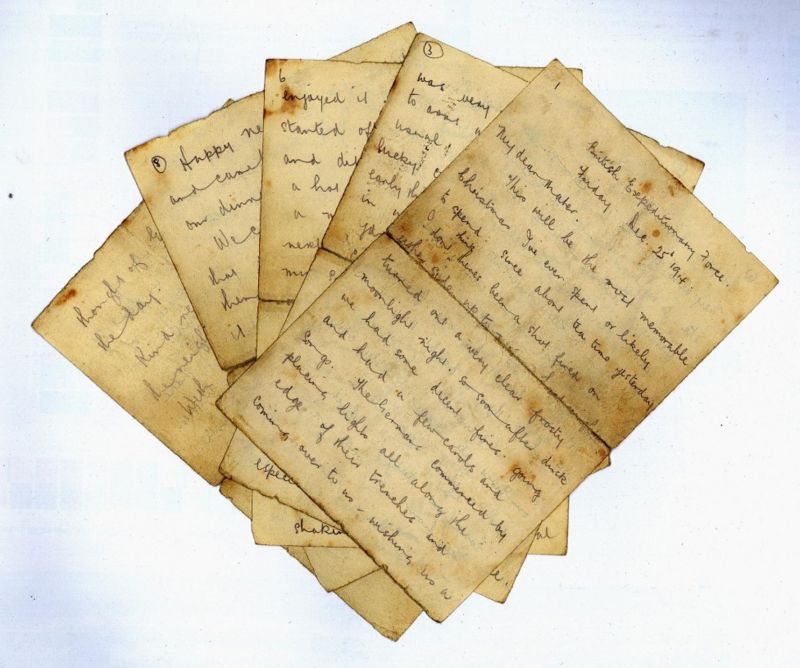 1
British Expeditionary Force
Friday Dec. 25th 1914.
My dear Mater.
This will be the most memorable
Christmas I've ever spent or likely
to spend: since about tea time yesterday
I don't think there's been a shot fired on
either side up to now. Last night
turned out a very clear frosty
moonlight night, so soon after dusk
we had some decent fires going
and had a few carols and
songs. The Germans commenced by
placing lights all along the
edge of their trenches and
coming over to us - wishing us a
3
was very
to ours
usual
lucky
early th
in
6
enjoyed it
started of
and di
a ha
a
next
8
Happy ne
and came
our dinn
We c
that
them
it
thought of
the day.
Kind re
With
espec
shakin